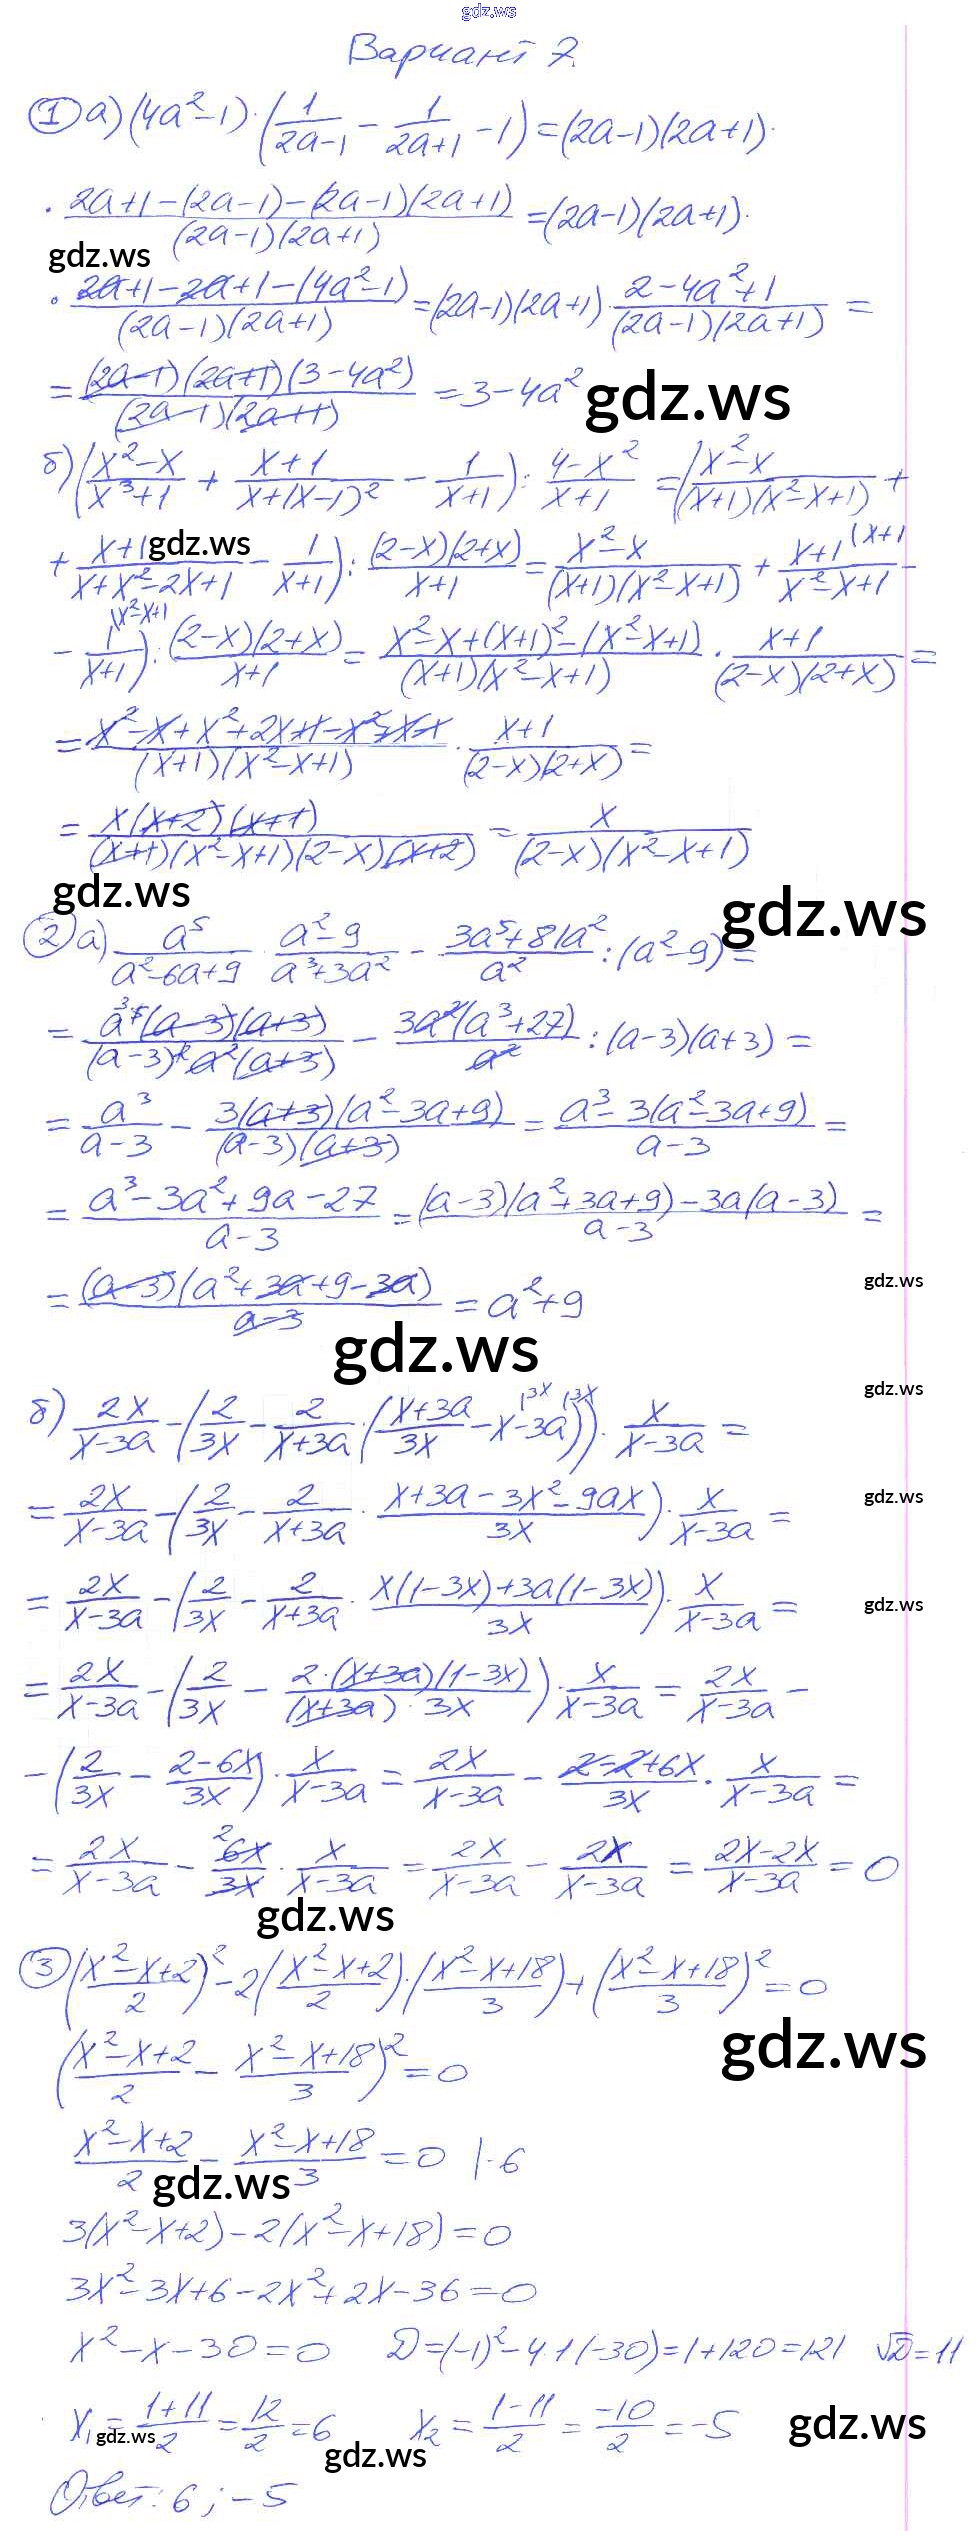 gdz.ws
Вариант 7.
① а) (4a²-1)·(1/(2a-1) - 1/(2a+1) - 1) = (2a-1)(2a+1)·
· (2a+1-(2a-1)-(2a-1)(2a+1))/((2a-1)(2a+1)) = (2a-1)(2a+1)·
gdz.ws
· (2a+1-2a+1-(4a²-1))/((2a-1)(2a+1)) = (2a-1)(2a+1)·(2-4a²+1)/((2a-1)(2a+1)) =
= ((2a-1)(2a+1)(3-4a²))/((2a-1)(2a+1)) = 3-4a²
gdz.ws
б) ((x²-x)/(x³+1) + (x+1)/(x+(x-1)²) - 1/(x+1)) : (4-x²)/(x+1) = ((x²-x)/((x+1)(x²-x+1)) +
+ (x+1)/(x+x²-2x+1) - 1/(x+1)) : ((2-x)(2+x))/(x+1) = (x²-x)/((x+1)(x²-x+1)) + (x+1)/(x²-x+1) (x+1 -
gdz.ws
- 1/(x+1) (x²-x+1) : ((2-x)(2+x))/(x+1) = (x²-x+(x+1)²-(x²-x+1))/((x+1)(x²-x+1)) · (x+1)/((2-x)(2+x)) =
= (x²-x+x²+2x+1-x²+x-1)/((x+1)(x²-x+1)) · (x+1)/((2-x)(2+x)) =
= (x(x+2)(x+1))/((x+1)(x²-x+1)(2-x)(x+2)) = x/((2-x)(x²-x+1))
gdz.ws
gdz.ws
② а) a⁵/(a²-6a+9) · (a²-9)/(a³+3a²) - (3a⁵+81a²)/a² : (a²-9) =
= (a⁵(a-3)(a+3))/((a-3)²a²(a+3)) - (3a²(a³+27))/a² : (a-3)(a+3) =
= a³/(a-3) - (3(a+3)(a²-3a+9))/((a-3)(a+3)) = (a³-3(a²-3a+9))/(a-3) =
= (a³-3a²+9a-27)/(a-3) = ((a-3)(a²+3a+9)-3a(a-3))/(a-3) =
gdz.ws
= ((a-3)(a²+3a+9-3a))/(a-3) = a²+9
gdz.ws
gdz.ws
б) 2x/(x-3a) - (2/3x - 2/(x+3a)·((x+3a)/3x - x (3x -3a (3x))·x/(x-3a) =
gdz.ws
= 2x/(x-3a) - (2/3x - 2/(x+3a)·(x+3a-3x²-9ax)/3x)·x/(x-3a) =
= 2x/(x-3a) - (2/3x - 2/(x+3a)·(x(1-3x)+3a(1-3x))/3x)·x/(x-3a) =
gdz.ws
= 2x/(x-3a) - (2/3x - (2·(x+3a)(1-3x))/((x+3a)·3x))·x/(x-3a) = 2x/(x-3a) -
- (2/3x - (2-6x)/3x)·x/(x-3a) = 2x/(x-3a) - (2-2+6x)/3x·x/(x-3a) =
= 2x/(x-3a) - 6x/3x·x/(x-3a) = 2x/(x-3a) - 2x/(x-3a) = (2x-2x)/(x-3a) = 0
gdz.ws
③ ((x²-x+2)/2)² - 2((x²-x+2)/2)·((x²-x+18)/3) + ((x²-x+18)/3)² = 0
gdz.ws
((x²-x+2)/2 - (x²-x+18)/3)² = 0
(x²-x+2)/2 - (x²-x+18)/3 = 0 |·6
gdz.ws
3(x²-x+2)-2(x²-x+18)=0
3x²-3x+6-2x²+2x-36=0
x²-x-30=0 D=(-1)²-4·1·(-30)=1+120=121 √D=11
x₁=(1+11)/2=12/2=6 x₂=(1-11)/2=-10/2=-5
gdz.ws
gdz.ws
gdz.ws
Ответ: 6; -5